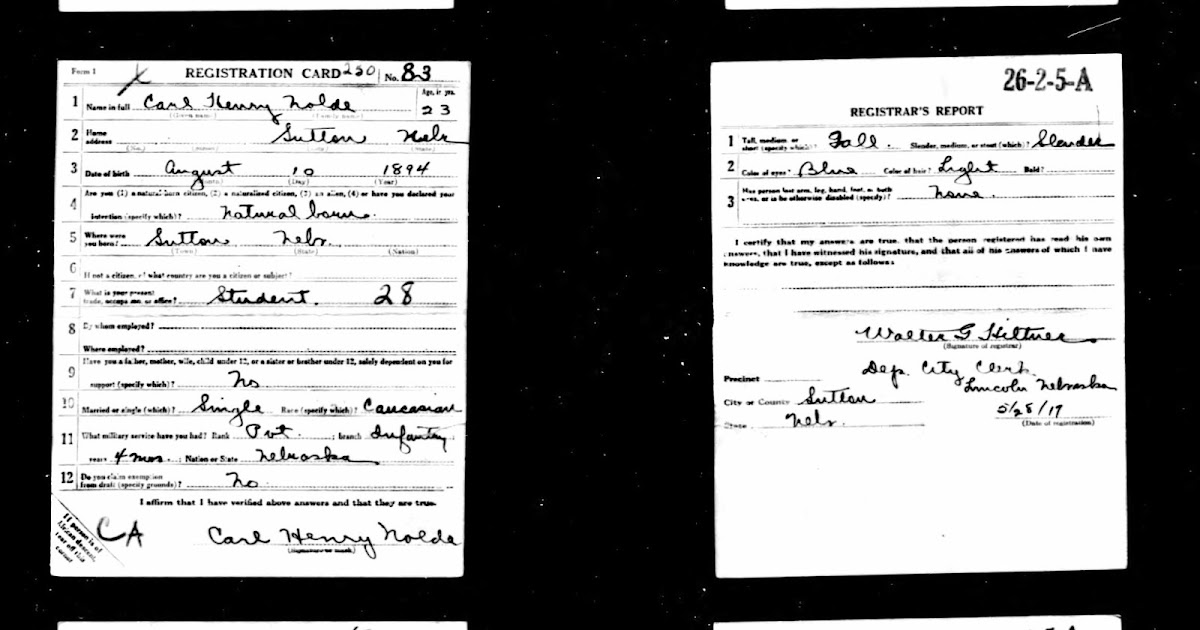 Form 1 REGISTRATION CARD 250 No. 83
1 Name in full Carl Henry Nolde Age, in yrs. 23
(Given name) (Family name)
2 Home address Sutton Nebr
(No.) (Street) (City) (State)
3 Date of birth August 10 1894
(Month) (Day) (Year)
4 Are you (1) a natural born citizen, (2) a naturalized citizen, (3) an alien, (4) or have you declared your
intention (specify which)? natural born.
5 Where were you born? Sutton Nebr.
(Town) (State) (Nation)
6 If not a citizen, of what country are you a citizen or subject?
7 What is your present trade, occupation, or office? Student. 28
8 By whom employed?
Where employed?
9 Have you a father, mother, wife, child under 12, or a sister or brother under 12, solely dependent on you for
support (specify which)? No
10 Married or single (which)? Single Race (specify which)? Caucasian
11 What military service have you had? Rank Pvt. ; branch Infantry
years 4 mos. ; Nation or State Nebraska
12 Do you claim exemption from draft (specify grounds)? No.
I affirm that I have verified above answers and that they are true.
CA
Carl Henry Nolde
(Signature or mark)
If person is of
African descent,
tear off this
corner
26-2-5-A
REGISTRAR'S REPORT
1 Tall, medium, or short (specify which)? Tall. Slender, medium, or stout (which)? Slender
2 Color of eyes? Blue Color of hair? Light Bald?
3 Has person lost arm, leg, hand, foot, or both
eyes, or is he otherwise disabled (specify)? None.
I certify that my answers are true, that the person registered has read his own
answers, that I have witnessed his signature, and that all of his answers of which I have
knowledge are true, except as follows:
Walter G Hiltner
(Signature of registrar)
Dep. City Clerk.
Precinct Lincoln Nebraska
City or County Sutton
State Nebr. 5/28/17
(Date of registration)